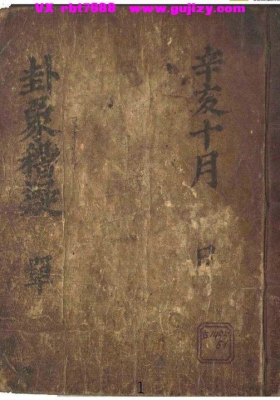 VX rbt7888 www.gujizy.com
辛亥十月 日
卦象禮疑 單
1